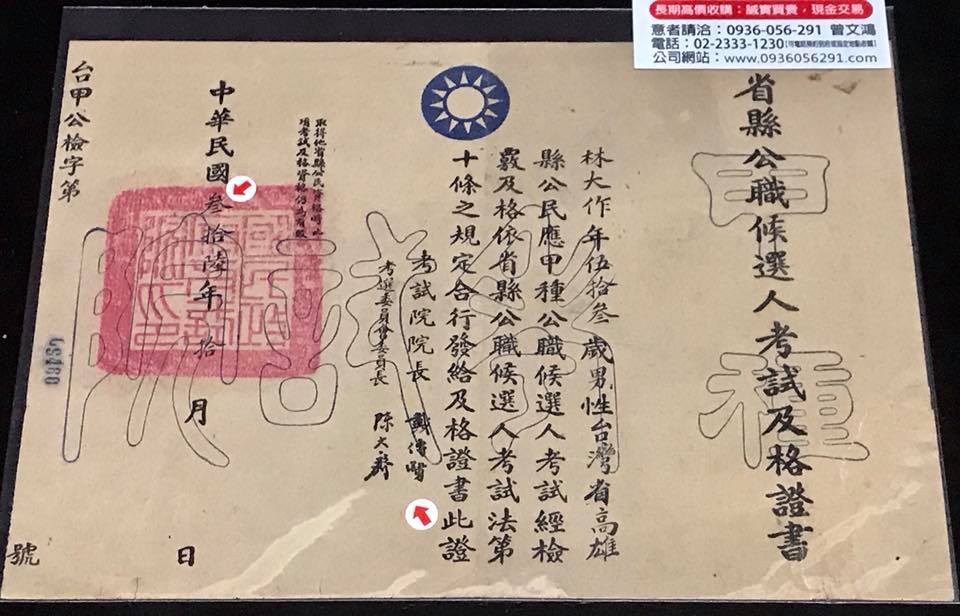 長期高價收購：誠實買賣，現金交易
意者請洽：0936-056-291 曾文鴻
電話：02-2333-1230
公司網站：www.0936056291.com
省縣公職候選人考試及格證書
甲種
林大作年伍拾叁歲男性台灣省高雄
縣公民應甲種公職候選人考試經檢
覈及格依省縣公職候選人考試法第
十條之規定合行發給及格證書此證
考試院院長 戴傳賢
考選委員會委員長 陳大齊
取得他省縣公民資格時此
項考試及格資格仍為有效
中華民國叁拾陸年拾月 日
台甲公檢字第 號